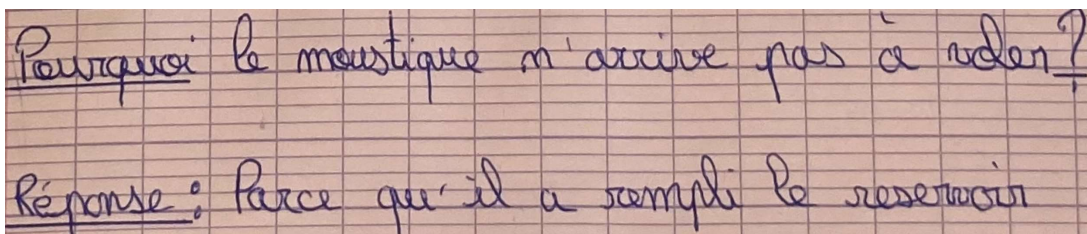 Pourquoi le moustique n'arrive pas à voler ?
Réponse : Parce qu'il a rempli le reservoir